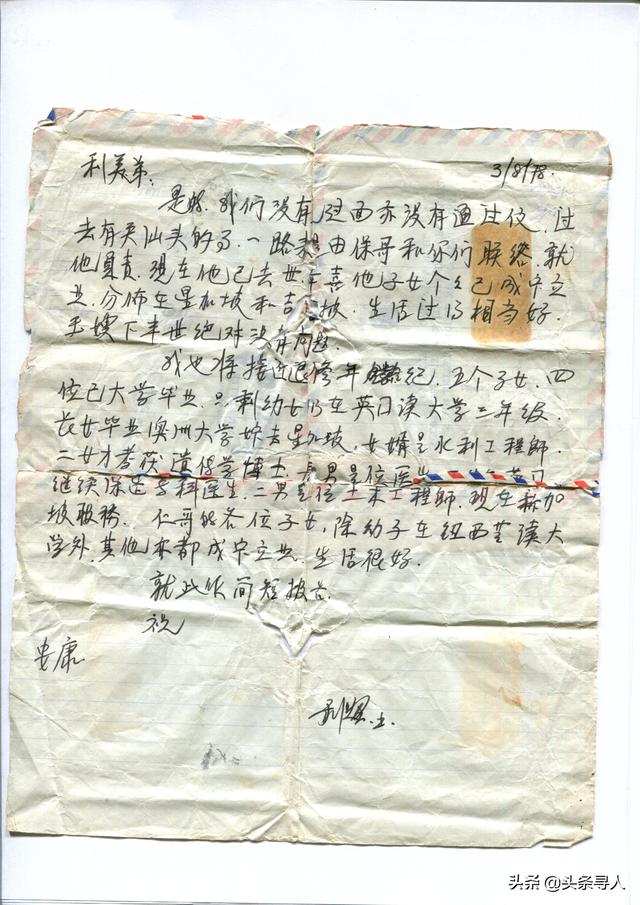 利美弟:
3/8/78.
是的. 我们没有见过面亦没有通过信, 过
去有关汕头的事, 一路来由保哥和你们联络, 就
他負責. 现在他已去世, 他子女个个已成家立
业, 分佈在星加坡和吉隆坡. 生活过得相当好.
玉嫂下半世绝对没有问题.
我也将接近退休年纪. 五个子女, 四
位已大学毕业. 只剩幼女仍在英国读大学二年级.
長女毕业澳洲大学, 嫁去星加坡, 女婿是水利工程師.
二女才考获遺傳学博士. 長男是位医生
继续深造专科医生. 二男是位土木工程師. 现在新加
坡服務. 仁哥的各位子女, 除幼子在纽西兰读大
学外, 其他亦都成家立业. 生活很好.
就此作简短报告.
祝
安康
上.
头条 @头条寻人